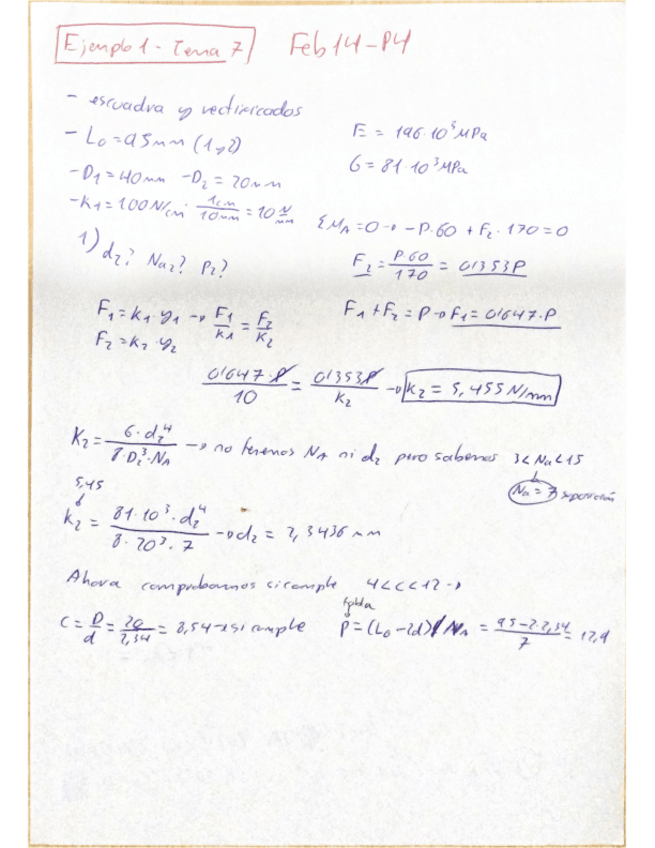 Ejemplo 1 - Tema 7 Feb14-P4
- escuadra y rectificados
- L₀ = 95mm (1 y 2)
E = 196·10³ MPa
- D₁ = 40mm - D₂ = 20mm
G = 81·10³ MPa
- K₁ = 100 N/cm · 1cm/10mm = 10 N/mm
ΣM_A = 0 → -P·60 + F₂·170 = 0
1) d₂? Na₂? P₂?
F₂ = P·60/170 = 0'353P
F₁ = k₁·y₁ → F₁/k₁ = F₂/K₂
F₂ = k₂·y₂
F₁ + F₂ = P → F₁ = 0'647·P
0'647·P/10 = 0'353P/K₂ → k₂ = 5,455 N/mm
K₂ = G·d₂⁴/8·D₂³·N_A → no tenemos N_A ni d₂ pero sabemos 3<Na<15
Na = 7 suposición
5,45
k₂ = 81·10³·d₂⁴/8·20³·7 → d₂ = 2,3436 mm
Ahora comprobamos si cumple 4<C<12 →
C = D/d = 20/2,34 = 8,54 → si cumple
P = (L₀-2d)/N_A = 95-2·2,34/7 = 12,9